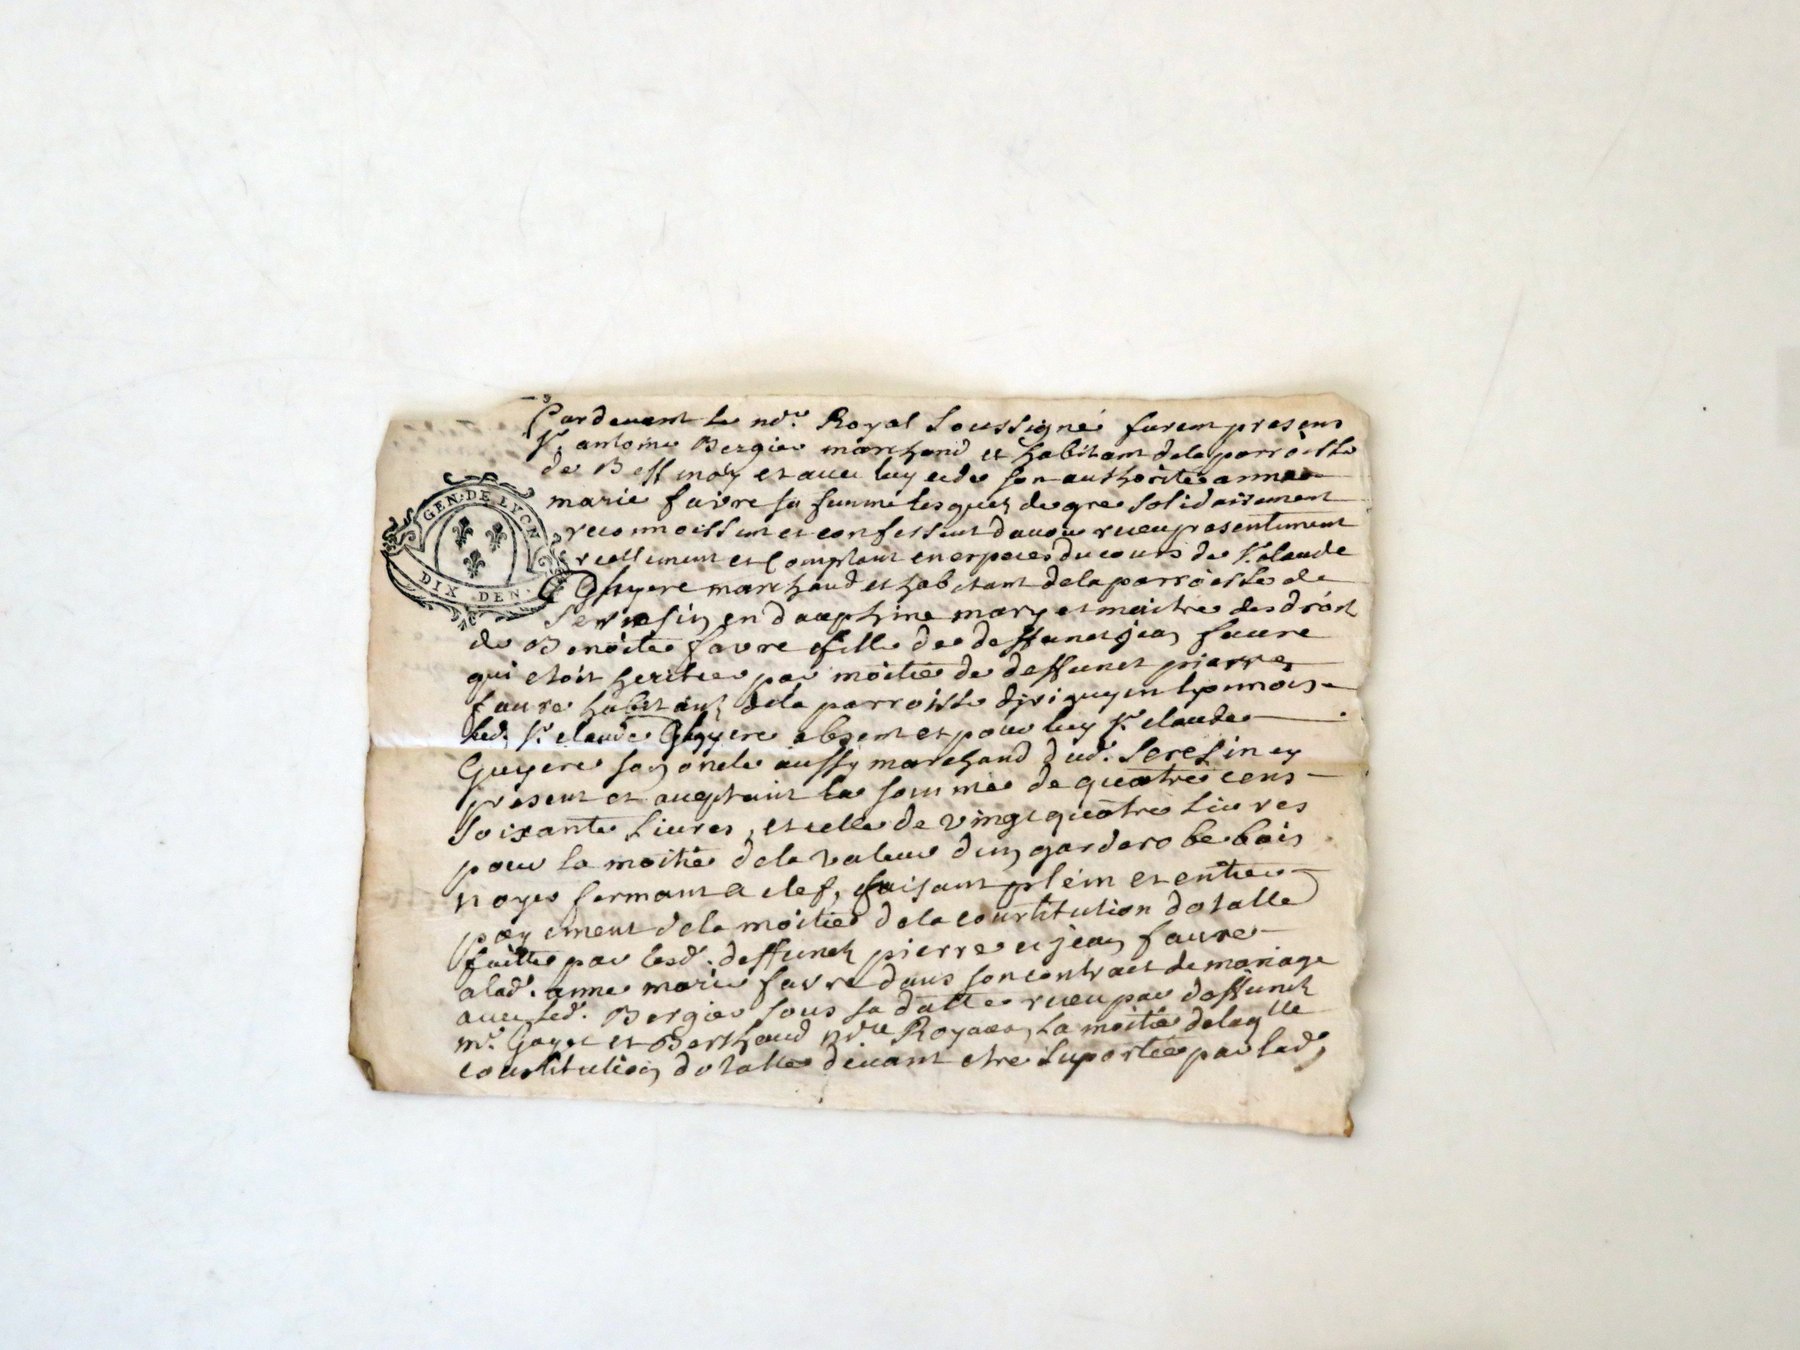 GEN. DE LYON
DIX . DEN.
Pardevant le nore Royal soussigné furent presens
Sr. antoine Bergier marchand et habitant de la parroisse
de et avec luy et de son authorité anne
marie favre sa femme lesquels de gre solidairement
reconnoissent et confessent davoir receu presentement
reellement et Comptant en especes du cours de Sr. claude
Guyere marchand et habitant de la parroisse de
en dauphine mary et maitre des droits
de Benoite favre fille de deffunct jean favre
qui etoit heritier par moitié de deffunct pierre
favre habitant de la parroisse en lyonnois
led. Sr. claude Guyere absent et pour luy Sr. claude
Guyere son oncle aussy marchand dud. Seresin icy
present et acceptant la somme de quatre cens
soixante Livres, et celle de vingt quatre Livres
pour la moitié de la valeur dun garderobe bois
noyer fermant a clef, faisant plein et entier
payement de la moitié de la constitution dotalle
faitte par lesd. deffuncts pierre et jean favre
a lad. anne marie favre dans son contract de mariage
avec led. Bergier sous sa datte receu par deffuncts
Me. Gayet et Berthaud nores Royaux, La moitié de laqlle
constitution dotalle devant etre suportée par lad.